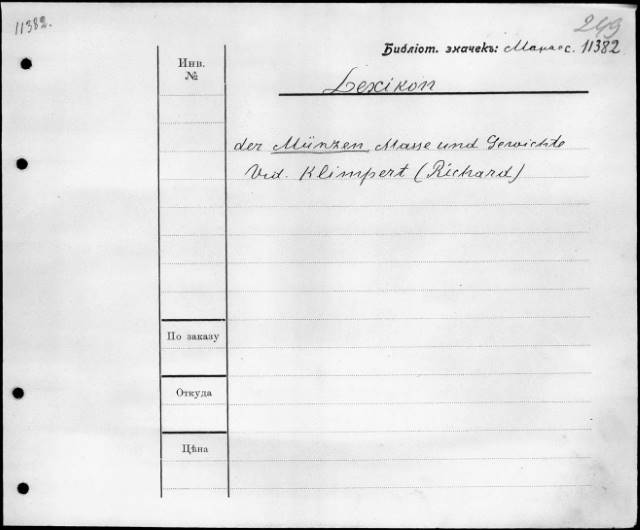 11382.
249
Библіот. значекъ: 11382
Инв.
№
Lexikon
der Münzen, Masse und Gewichte
Vid. Klimpert (Richard)
По заказу
Откуда
Цѣна